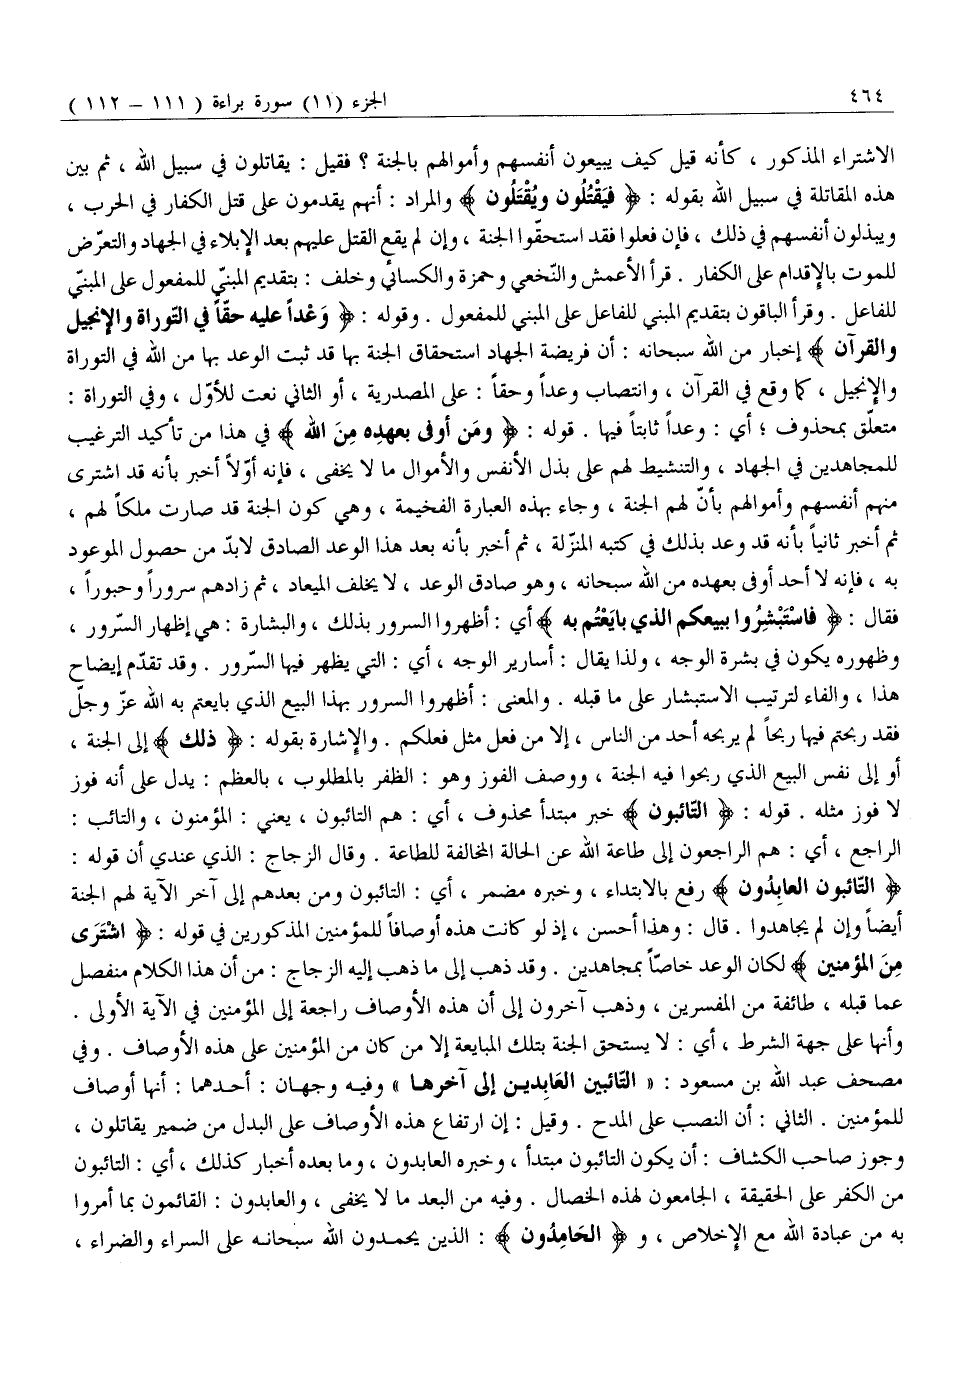 ٤٦٤
الجزء (١١) سورة براءة ( ١١١ – ١١٢ )
الاشتراء المذكور ، كأنه قيل كيف يبيعون أنفسهم وأموالهم بالجنة ؟ فقيل : يقاتلون في سبيل الله ، ثم بين
هذه المقاتلة في سبيل الله بقوله : ﴿ فَيَقْتُلُون ويُقْتَلُون ﴾ والمراد : أنهم يقدمون على قتل الكفار في الحرب ،
ويبذلون أنفسهم في ذلك ، فإن فعلوا فقد استحقّوا الجنة ، وإن لم يقع القتل عليهم بعد الإبلاء في الجهاد والتعرّض
للموت بالإقدام على الكفار . قرأ الأعمش والنّخعي وحمزة والكسائي وخلف : بتقديم المبنيّ للمفعول على المبنيّ
للفاعل . وقرأ الباقون بتقديم المبني للفاعل على المبني للمفعول . وقوله : ﴿ وَعْداً عليه حقّاً في التّوراة والإنجيل
والقرآن ﴾ إخبار من الله سبحانه : أن فريضة الجهاد استحقاق الجنة بها قد ثبت الوعد بها من الله في التوراة
والإنجيل ، كما وقع في القرآن ، وانتصاب وعداً وحقاً : على المصدرية ، أو الثاني نعت للأوّل ، وفي التوراة :
متعلّق بمحذوف ؛ أي : وعداً ثابتاً فيها . قوله : ﴿ ومَن أوفى بعهدِه مِنَ الله ﴾ في هذا من تأكيد الترغيب
للمجاهدين في الجهاد ، والتنشيط لهم على بذل الأنفس والأموال ما لا يخفى ، فإنه أوّلاً أخبر بأنه قد اشترى
منهم أنفسهم وأموالهم بأنّ لهم الجنة ، وجاء بهذه العبارة الفخيمة ، وهي كون الجنة قد صارت ملكاً لهم ،
ثم أخبر ثانياً بأنه قد وعد بذلك في كتبه المنزّلة ، ثم أخبر بأنه بعد هذا الوعد الصادق لابدّ من حصول الموعود
به ، فإنه لا أحد أوفى بعهده من الله سبحانه ، وهو صادق الوعد ، لا يخلف الميعاد ، ثم زادهم سروراً وحبوراً ،
فقال : ﴿ فاسْتَبْشِرُوا ببيعكم الذي بايَعْتُم به ﴾ أي : أظهروا السرور بذلك ، والبشارة : هي إظهار السّرور ،
وظهوره يكون في بشرة الوجه ، ولذا يقال : أسارير الوجه ، أي : التي يظهر فيها السّرور . وقد تقدّم إيضاح
هذا ، والفاء لترتيب الاستبشار على ما قبله . والمعنى : أظهروا السرور بهذا البيع الذي بايعتم به الله عزّ وجلّ
فقد ربحتم فيها ربحاً لم يربحه أحد من الناس ، إلا من فعل مثل فعلكم . والإشارة بقوله : ﴿ ذلك ﴾ إلى الجنة ،
أو إلى نفس البيع الذي ربحوا فيه الجنة ، ووصف الفوز وهو : الظفر بالمطلوب ، بالعظم : يدل على أنه فوز
لا فوز مثله . قوله : ﴿ التّائبون ﴾ خبر مبتدأ محذوف ، أي : هم التائبون ، يعني : المؤمنون ، والتائب :
الراجع ، أي : هم الراجعون إلى طاعة الله عن الحالة المخالفة للطاعة . وقال الزجاج : الذي عندي أن قوله :
﴿ التّائبون العابِدُون ﴾ رفع بالابتداء ، وخبره مضمر ، أي : التائبون ومن بعدهم إلى آخر الآية لهم الجنة
أيضاً وإن لم يجاهدوا . قال : وهذا أحسن ، إذ لو كانت هذه أوصافاً للمؤمنين المذكورين في قوله : ﴿ اشْتَرَى
مِنَ المؤمنين ﴾ لكان الوعد خاصّاً بمجاهدين . وقد ذهب إلى ما ذهب إليه الزجاج : من أن هذا الكلام منفصل
عما قبله ، طائفة من المفسرين ، وذهب آخرون إلى أن هذه الأوصاف راجعة إلى المؤمنين في الآية الأولى .
وأنها على جهة الشرط ، أي : لا يستحق الجنة بتلك المبايعة إلا من كان من المؤمنين على هذه الأوصاف . وفي
مصحف عبد الله بن مسعود : « التّائبين العَابِدين إلى آخرها » وفيه وجهان : أحدهما : أنها أوصاف
للمؤمنين . الثاني : أن النصب على المدح . وقيل : إن ارتفاع هذه الأوصاف على البدل من ضمير يقاتلون ،
وجوز صاحب الكشاف : أن يكون التائبون مبتدأ ، وخبره العابدون ، وما بعده أخبار كذلك ، أي : التائبون
من الكفر على الحقيقة ، الجامعون لهذه الخصال . وفيه من البعد ما لا يخفى ، والعابدون : القائمون بما أمروا
به من عبادة الله مع الإخلاص ، و ﴿ الحَامِدُون ﴾ : الذين يحمدون الله سبحانه على السراء والضراء ،